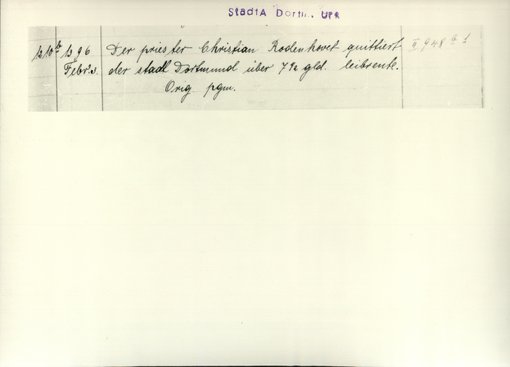 StadtA Dortm. UPR
1396 Der priester Christian Rodenhovet quittiert II 948 a 1
Febr. der stadt Dortmund über 7½ gld. leibrente.
Orig pgm.